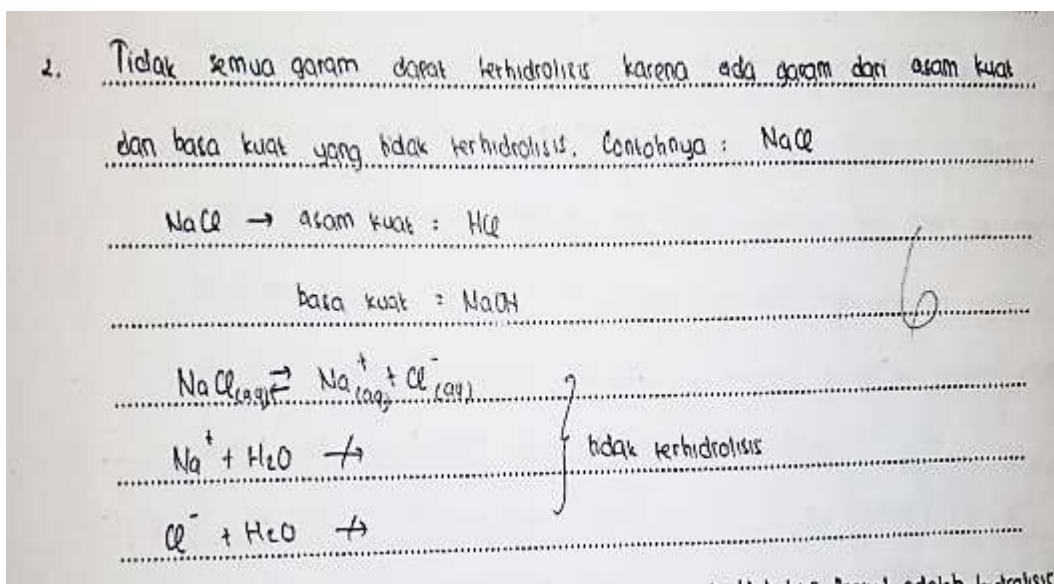 2. Tidak semua garam dapat terhidrolisis karena ada garam dari asam kuat
dan basa kuat yang tidak terhidrolisis. Contohnya : NaCl
NaCl → asam kuat : HCl
basa kuat : NaOH
6
NaCl(aq) ⇄ Na⁺(aq) + Cl⁻(aq)
Na⁺ + H₂O ↛
tidak terhidrolisis
Cl⁻ + H₂O ↛
adalah